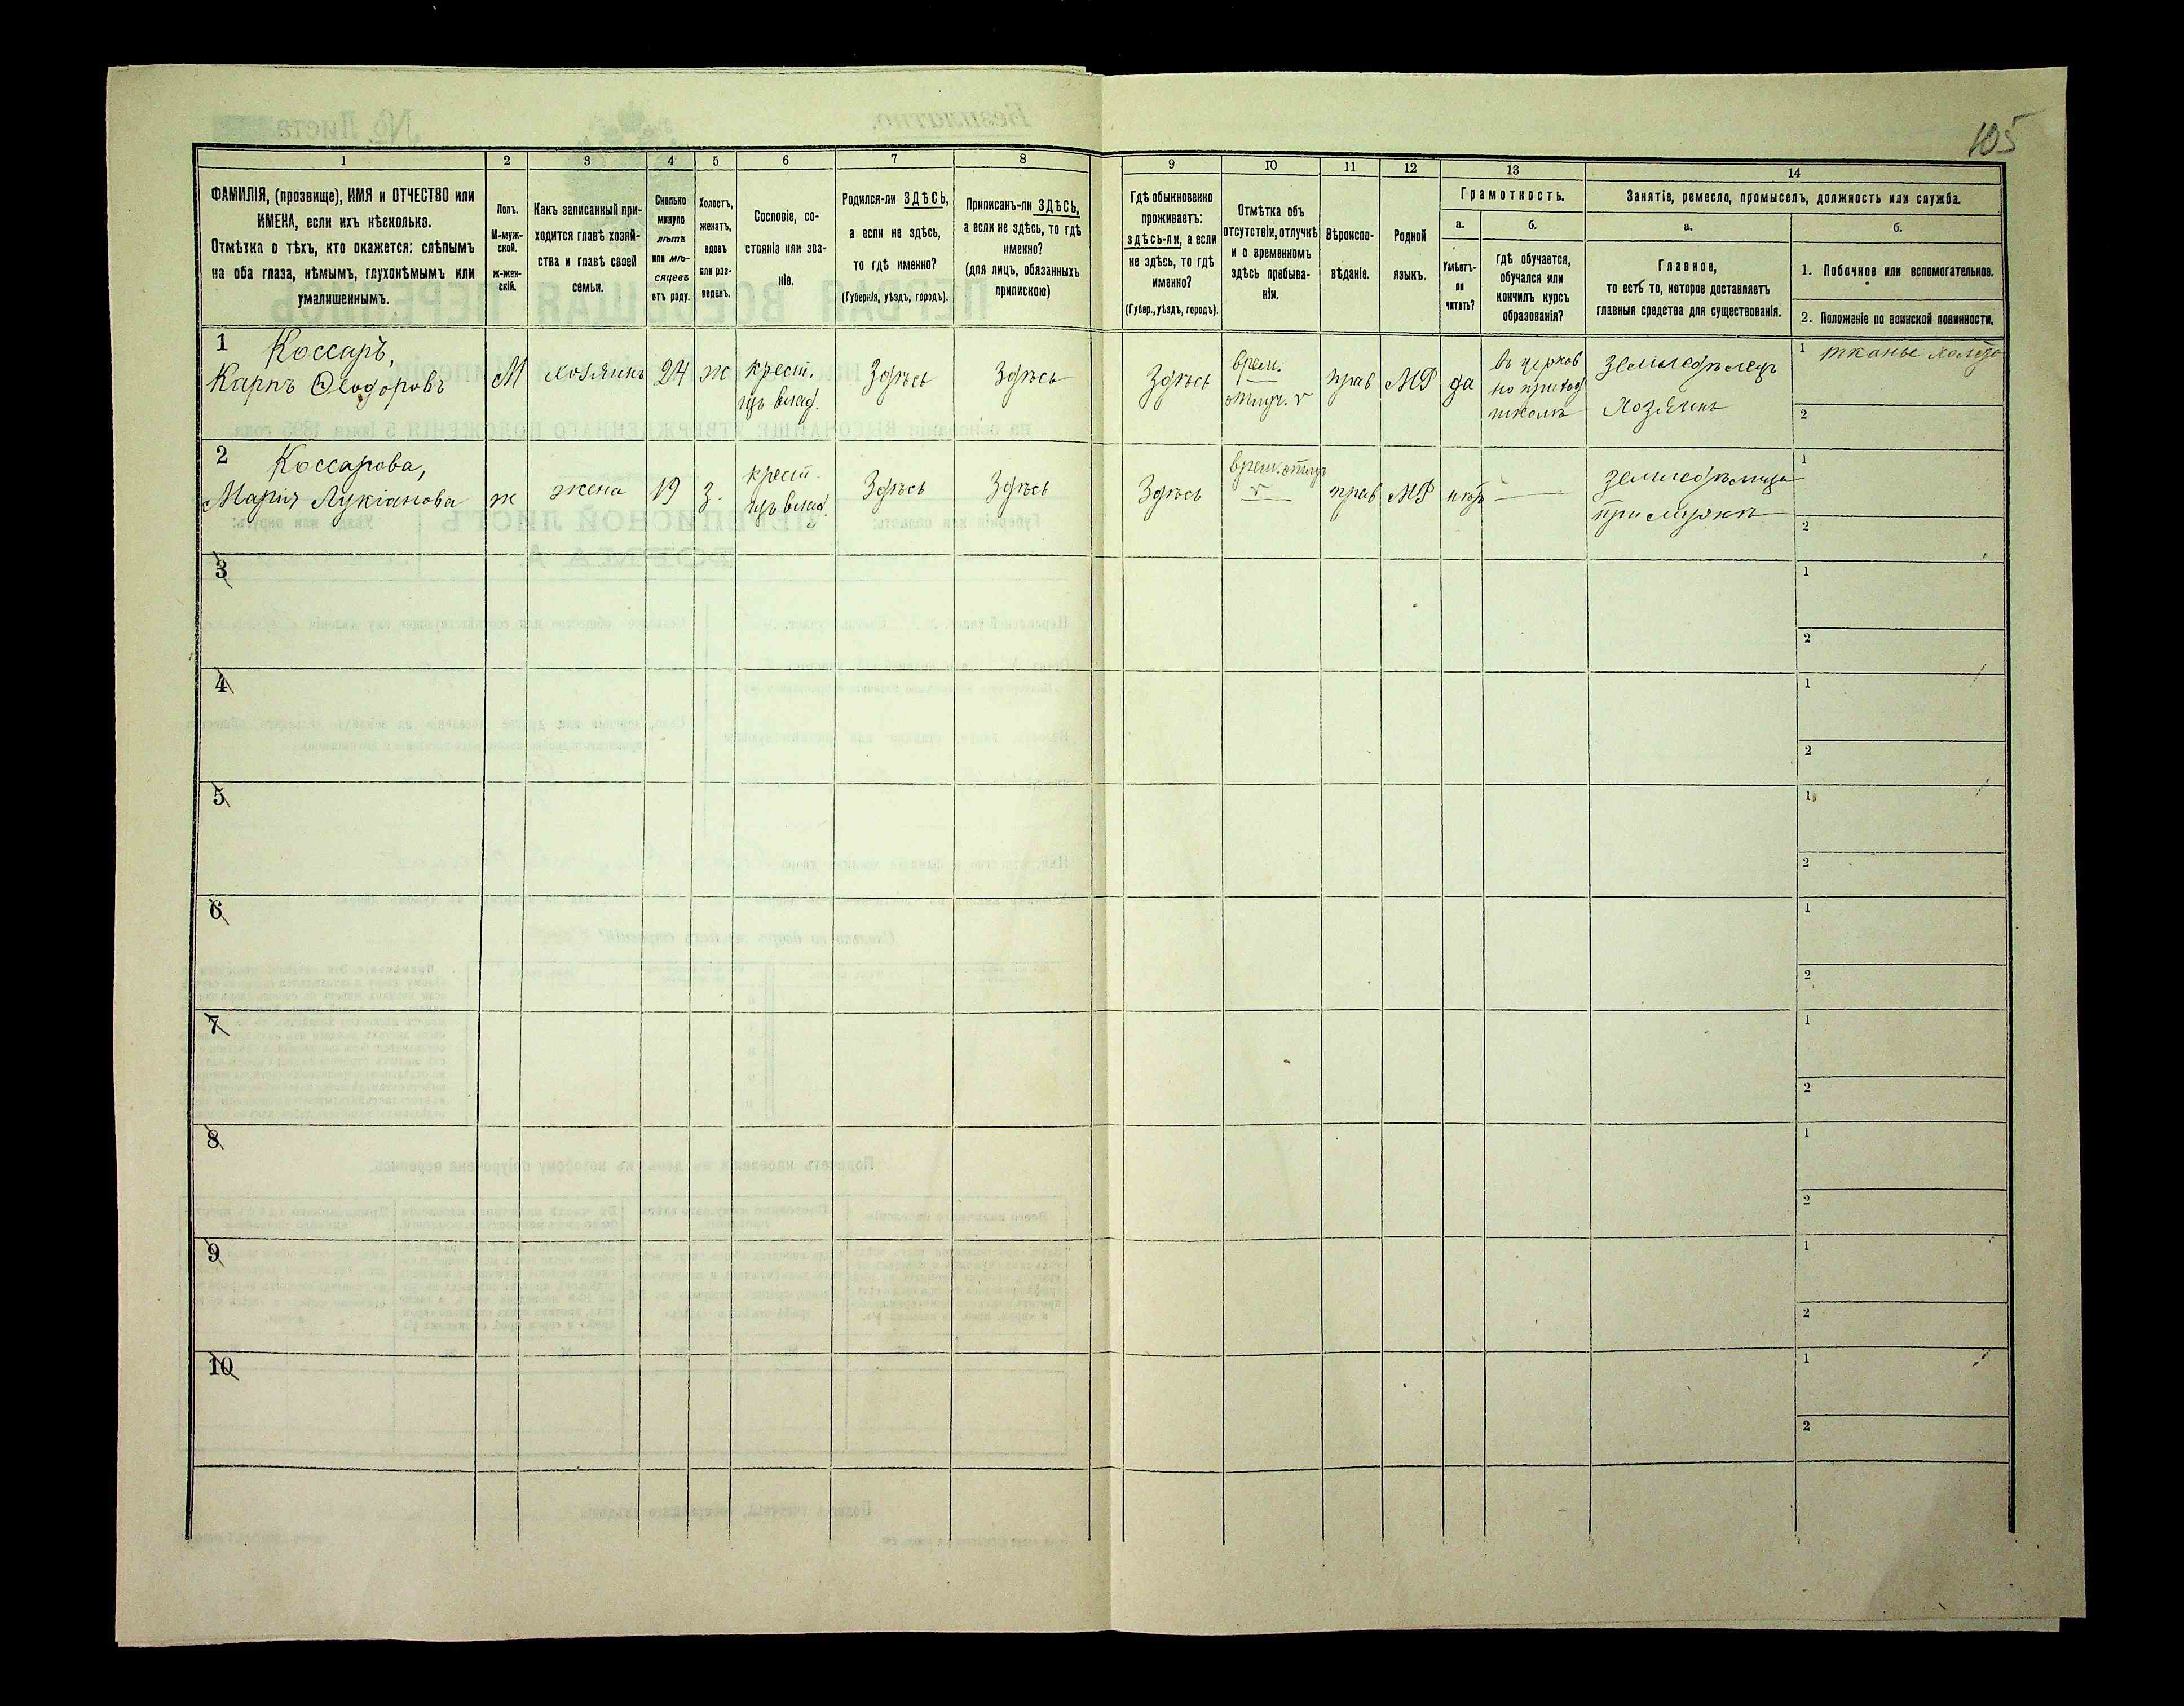 105
1 2 3 4 5 6 7 8 9 10 11 12 13 14
ФАМИЛІЯ, (прозвище), ИМЯ и ОТЧЕСТВО или
ИМЕНА, если ихъ нѣсколько.
Отмѣтка о тѣхъ, кто окажется: слѣпымъ
на оба глаза, нѣмымъ, глухонѣмымъ или
умалишеннымъ.
Полъ.
М-муж-
ской.
ж-жен-
скій.
Какъ записанный при-
ходится главѣ хозяй-
ства и главѣ своей
семьи.
Сколько
минуло
лѣтъ
или мѣ-
сяцевъ
отъ роду.
Холостъ,
женатъ,
вдовъ
или раз-
веденъ.
Сословіе, со-
стояніе или зва-
ніе.
Родился-ли ЗДѢСЬ,
а если не здѣсь,
то гдѣ именно?
(Губернія, уѣздъ, городъ).
Приписанъ-ли ЗДѢСЬ,
а если не здѣсь, то гдѣ
именно?
(для лицъ, обязанныхъ
припискою)
Гдѣ обыкновенно
проживаетъ:
здѣсь-ли, а если
не здѣсь, то гдѣ
именно?
(Губер., уѣздъ, городъ).
Отмѣтка объ
отсутствіи, отлучкѣ
и о временномъ
здѣсь пребыва-
ніи.
Вѣроиспо-
вѣданіе.
Родной
языкъ.
Грамотность.
а.
Умѣетъ-
ли
читать?
б.
гдѣ обучается,
обучался или
кончилъ курсъ
образованія?
Занятіе, ремесло, промыселъ, должность или служба.
а.
Главное,
то есть то, которое доставляетъ
главныя средства для существованія.
б.
1. Побочное или вспомогательное.
2. Положеніе по воинской повинности.
1 Коссаръ,
Карпъ Ѳеодоровъ
М
хозяинъ
24
ж
крест.
изъ влад.
Здѣсь
Здѣсь
Здѣсь
врем.
отлуч. v
прав
МР
да
въ церков
но приход
школѣ
земледѣлецъ
хозяинъ
1 тканье холста
2
2 Коссарова,
Марія Лукіанова
ж
жена
19
з.
крест.
изъ влад.
Здѣсь
Здѣсь
Здѣсь
врем. отлуч
v
прав
МР
нѣтъ
—
земледѣлица
при мужѣ
1
2
3
1
2
4
1
2
5
1
2
6
1
2
7
1
2
8
1
2
9
1
2
10
1
2